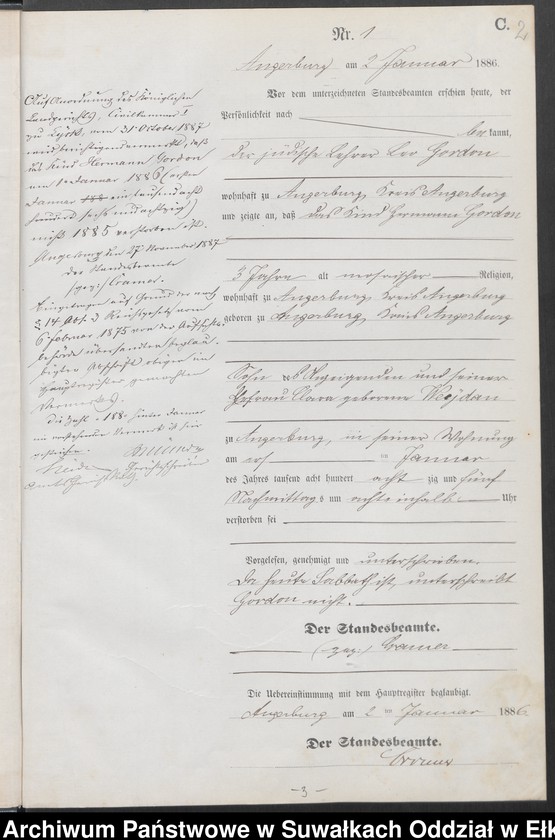 C. 2
Nr. 1
Angerburg am 2 Januar 1886.
Vor dem unterzeichneten Standesbeamten erschien heute, der
Persönlichkeit nach
bekannt,
der jüdische Lehrer Leo Gordon
wohnhaft zu Angerburg, Kreis Angerburg
und zeigte an, daß das Kind Hermann Gordon
3 Jahre alt mosaischer Religion,
wohnhaft zu Angerburg, Kreis Angerburg
geboren zu Angerburg, Kreis Angerburg
Sohn des Anzeigenden und seiner
Ehefrau Clara geborene
zu Angerburg, in seiner Wohnung
am ersten Januar
des Jahres tausend acht hundert achtzig und fünf
Nachmittags um acht einhalb Uhr
verstorben sei
Vorgelesen, genehmigt und unterschrieben.
Da heute Sabbath ist, unterschreibt
Gordon nicht.
Der Standesbeamte.
(gez.) Cramer
Die Uebereinstimmung mit dem Hauptregister beglaubigt.
Angerburg am 2 ten Januar 1886
Der Standesbeamte.
Cramer
- 3 -
Auf Anordnung des Königlichen
Landgerichts, Civilkammer 1
zu Lyck, vom 31 October 1887
wird berichtigend vermerkt, daß
das Kind Hermann Gordon
am 1. Januar 1886 (ersten
Januar ein tausend acht
hundert sechs und achtzig)
nicht 1885 verstorben ist.
Angerburg den 27 November 1887
Der Standesbeamte
(gez.) Cramer.
Eingetragen auf Grund der nach
§ 14 Abs. 3 Reichsgesetz vom
6 Februar 1875 von der Aufsichts-
behörde übersandten beglau-
bigten Abschrift obigen im
Hauptregister gemachten
Vermerks.
Die Zahl 188 hinter Januar
im vorstehenden Vermerk ist hier
gestrichen.
Gerichtsschreiber
Archiwum Państwowe w Suwałkach Oddział w Ełk